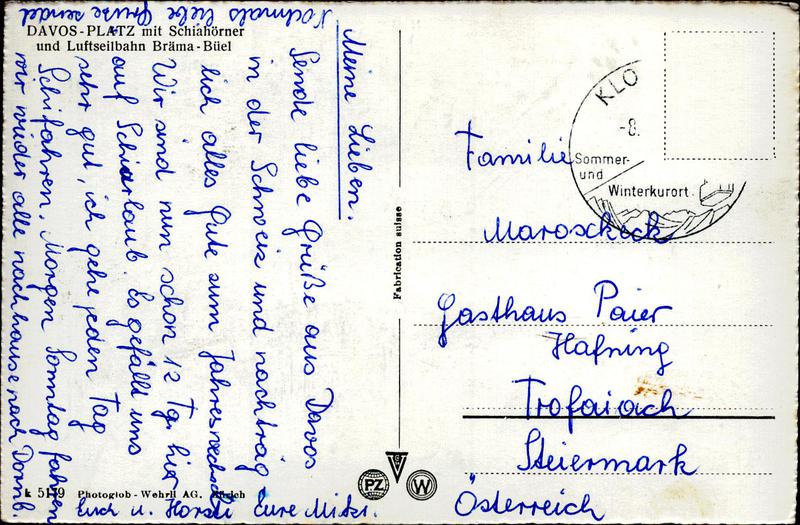 DAVOS-PLATZ mit Schiahörner
und Luftseilbahn Bräma-Büel
Meine Lieben.
Sende liebe Grüße aus Davos
in der Schweiz und nachträg-
lich alles Gute zum Jahreswechsel
Wir sind nun schon 12 Tg. hier
auf Schiurlaub. Es gefällt uns
sehr gut, ich gehe jeden Tag
Schifahren. Morgen Sonntag fahren
wir wieder alle nachhause nach Dornb.
Nochmals liebe Grüsse sendet
Euch u. Horsti Eure Mitzi.
k 5119 Photoglob-Wehrli AG. Zürich
Fabrication suisse
PZ
W
KLO
-8.
Sommer-
und
Winterkurort
Familie
Maroscheck
Gasthaus Paier
Hafning
Trofaiach
Steiermark
Österreich